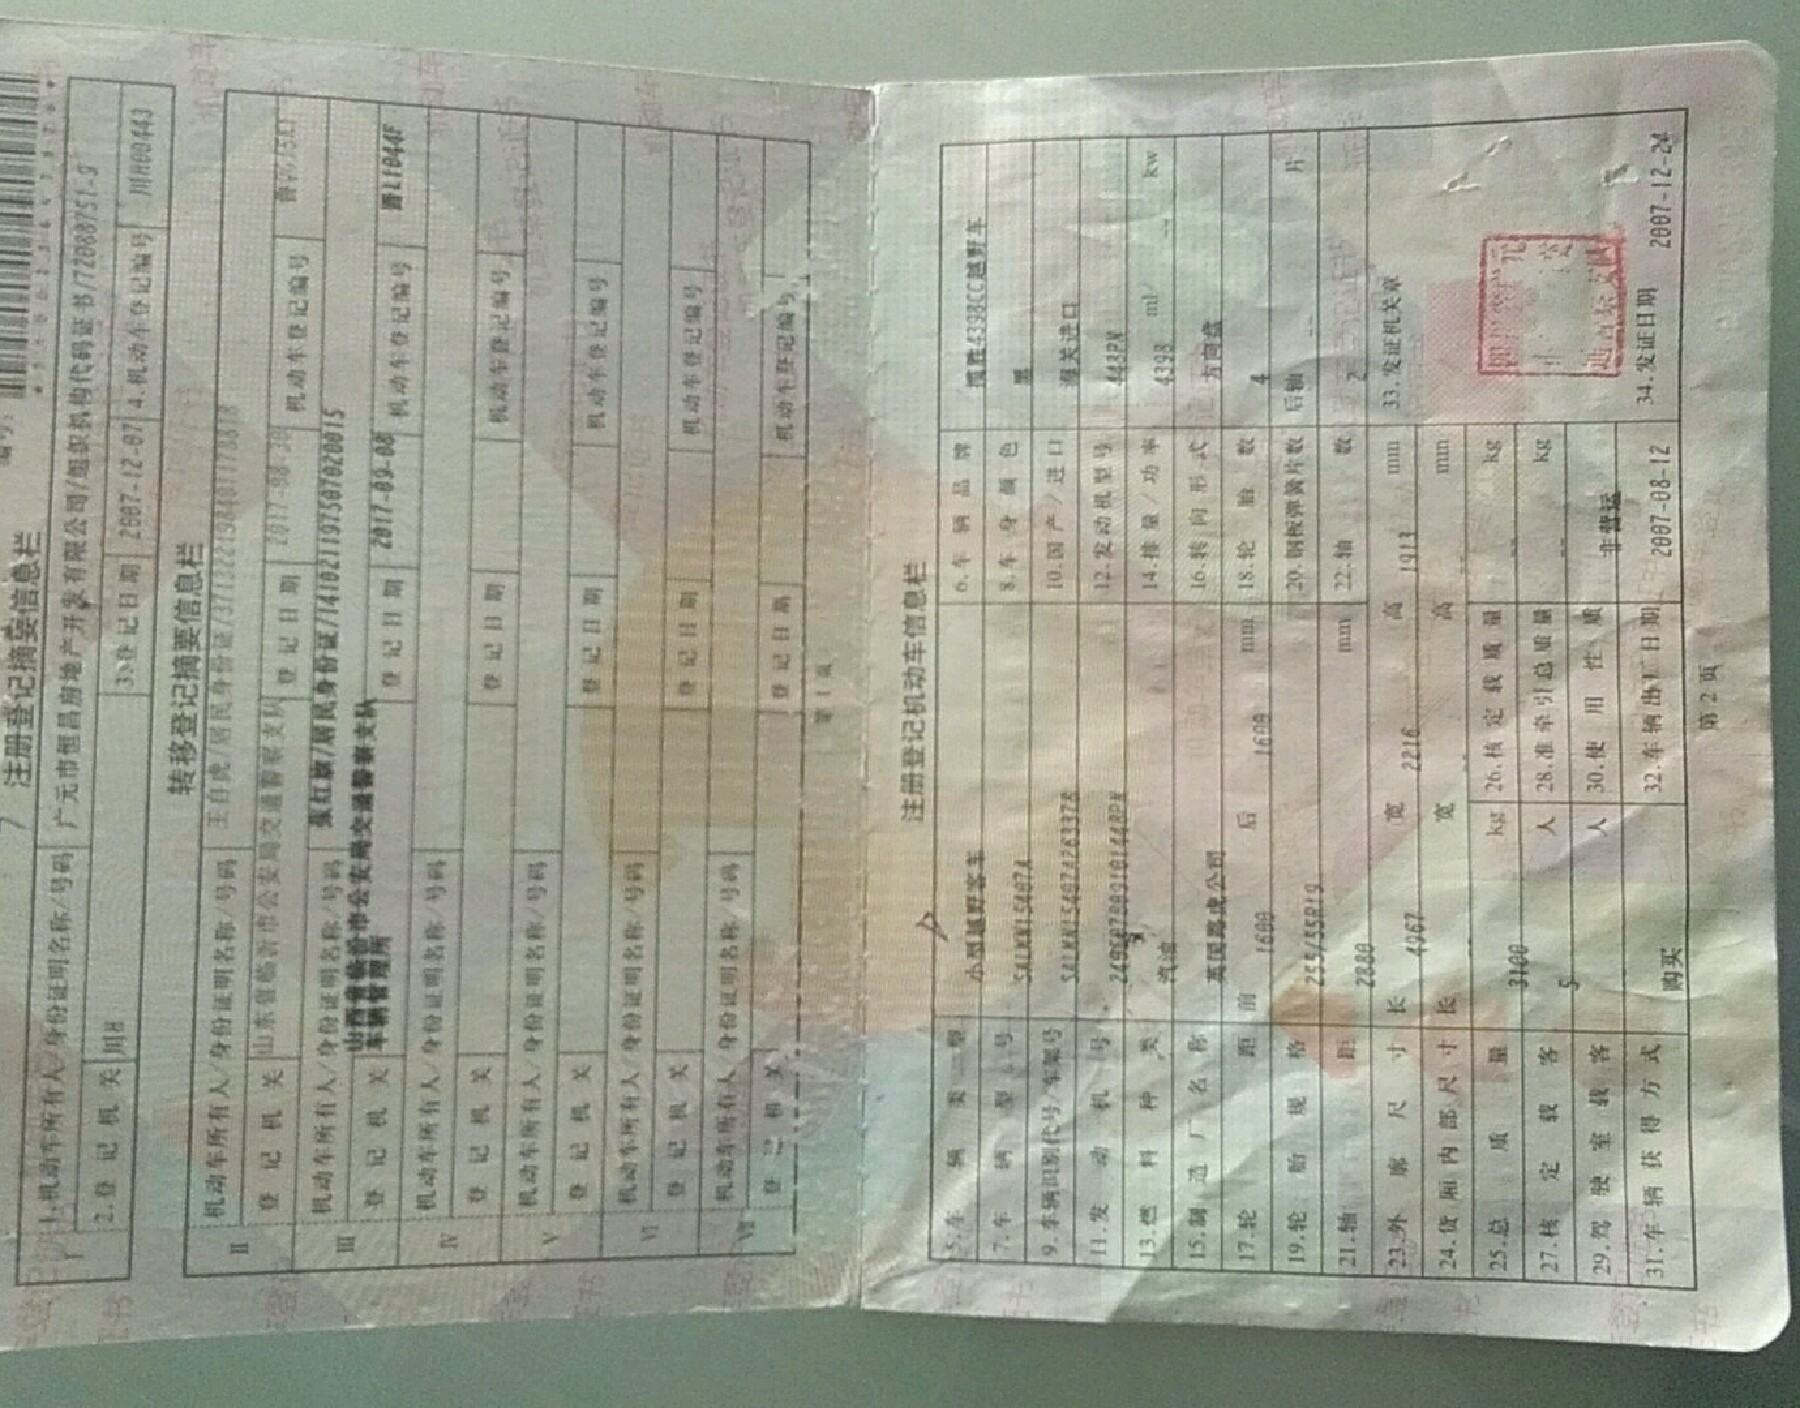 编号:
注册登记摘要信息栏
I 1.机动车所有人/身份证明名称/号码 广元市恒昌房地产开发有限公司/组织机构代码证书/72088751-9
2.登记机关 川H 3.登记日期 2007-12-07 4.机动车登记编号 川H00443
转移登记摘要信息栏
II 机动车所有人/身份证明名称/号码 王自虎/居民身份证
登记机关 山东省临沂市公安局交通警察支队 登记日期 2017-08-30 机动车登记编号
III 机动车所有人/身份证明名称/号码 张红旗/居民身份证/141021197507020015
登记机关 山西省临汾市公安局交通警察支队车辆管理所 登记日期 2017-09-08 机动车登记编号 晋L1044F
IV 机动车所有人/身份证明名称/号码
登记机关 登记日期 机动车登记编号
V 机动车所有人/身份证明名称/号码
登记机关 登记日期 机动车登记编号
VI 机动车所有人/身份证明名称/号码
登记机关 登记日期 机动车登记编号
VII 机动车所有人/身份证明名称/号码
登记机关 登记日期 机动车登记编号
第1页
注册登记机动车信息栏
5.车辆类型 小型越野客车 6.车辆品牌 揽胜4398CC越野车
7.车辆型号 SALMN15467A 8.车身颜色 黑
9.车辆识别代号/车架号 SALMN15467A26337A 10.国产/进口 海关进口
11.发动机号 12.发动机型号 448PN
13.燃料种类 汽油 14.排量/功率 4398 ml/ -- kw
15.制造厂名称 英国路虎公司 16.转向形式 方向盘
17.轮距 前 1600 后 1600 mm 18.轮胎数 4
19.轮胎规格 255/55R19 20.钢板弹簧片数 后轴 -- 片
21.轴距 2880 mm 22.轴数 2
23.外廓尺寸 长 4967 宽 2216 高 1913 mm 33.发证机关章
24.货厢内部尺寸 长 -- 宽 -- 高 -- mm
25.总质量 3100 kg 26.核定载质量 -- kg
27.核定载客 5 人 28.准牵引总质量 -- kg
29.驾驶室载客 人 30.使用性质 非营运
31.车辆获得方式 购买 32.车辆出厂日期 2007-08-12 34.发证日期 2007-12-24
第2页